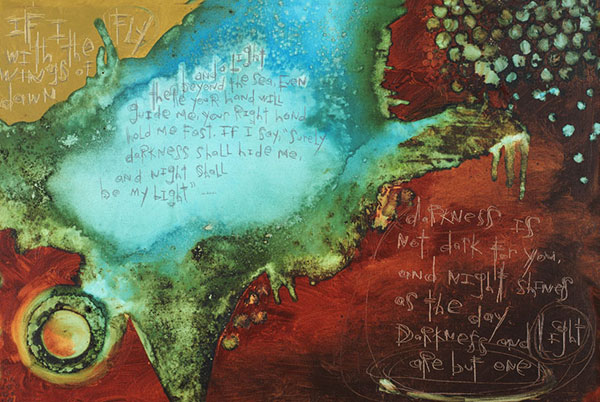 IF I FLY
with the
wings of
dawn
and alight
beyond the sea, even
there your hand will
guide me, your right hand
hold me fast. If I say, "Surely
darkness shall hide me,
and night shall
be my light"
darkness is
not dark for you,
and night shines
as the day.
Darkness and light
are but one